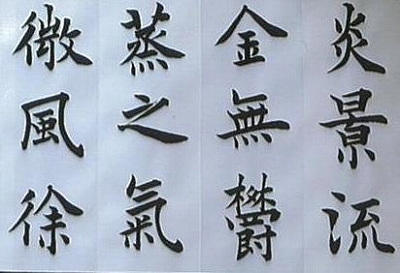 炎景流
金無欝
蒸之氣
微風徐